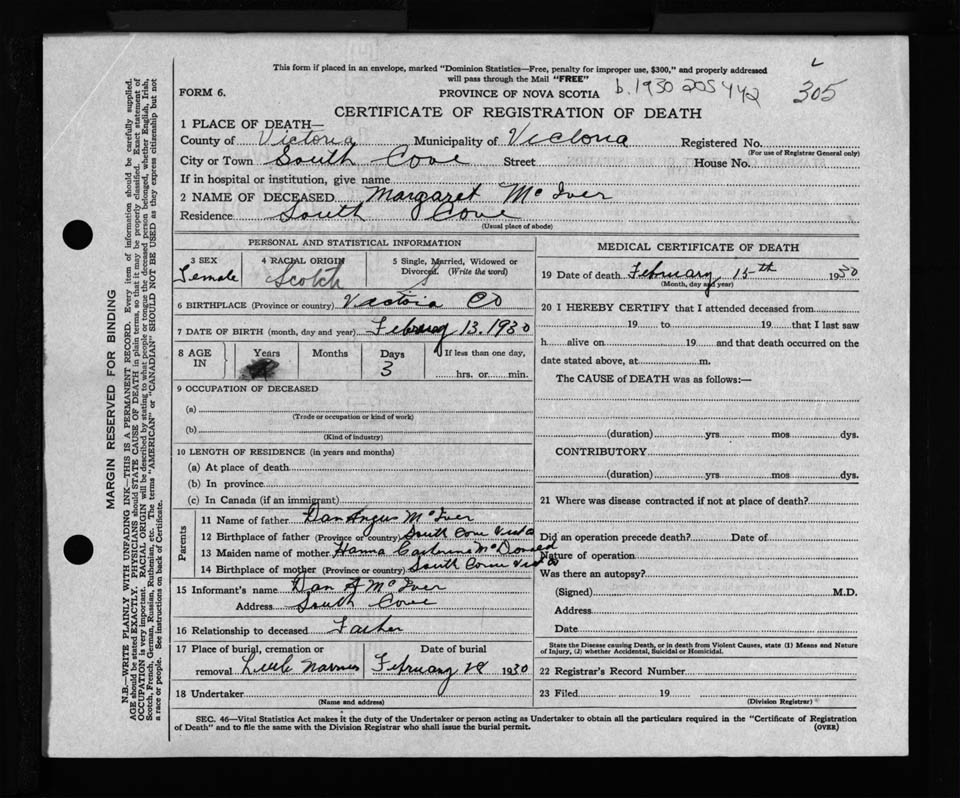 This form if placed in an envelope, marked "Dominion Statistics—Free, penalty for improper use, $300," and properly addressed
will pass through the Mail "FREE"
FORM 6.
PROVINCE OF NOVA SCOTIA
b. 1930 205442
305
CERTIFICATE OF REGISTRATION OF DEATH
1 PLACE OF DEATH—
County of Victoria Municipality of Victoria Registered No.
(For use of Registrar General only)
City or Town South Cove Street House No.
If in hospital or institution, give name
2 NAME OF DECEASED Margaret McIver
Residence South Cove
(Usual place of abode)
PERSONAL AND STATISTICAL INFORMATION
3 SEX 4 RACIAL ORIGIN 5 Single, Married, Widowed or Divorced. (Write the word)
Female Scotch S
6 BIRTHPLACE (Province or country) Victoria Co
7 DATE OF BIRTH (month, day and year) February 13. 1930
8 AGE IN Years Months Days If less than one day,
3 hrs. or min.
9 OCCUPATION OF DECEASED
(a)
(Trade or occupation or kind of work)
(b)
(Kind of industry)
10 LENGTH OF RESIDENCE (in years and months)
(a) At place of death
(b) In province
(c) In Canada (if an immigrant)
Parents
11 Name of father Dan Angus McIver
12 Birthplace of father (Province or country) South Cove
13 Maiden name of mother Hanna Catherine McDonald
14 Birthplace of mother (Province or country) South Cove
15 Informant's name Dan A McIver
Address South Cove
16 Relationship to deceased Father
17 Place of burial, cremation or Date of burial
removal Little Narrows February 1930
18 Undertaker
(Name and address)
MEDICAL CERTIFICATE OF DEATH
19 Date of death February 15th 1930
(Month, day and year)
20 I HEREBY CERTIFY that I attended deceased from
19 to 19 that I last saw
h alive on 19 and that death occurred on the
date stated above, at m.
The CAUSE of DEATH was as follows:—
(duration) yrs. mos dys.
CONTRIBUTORY
(duration) yrs. mos. dys.
21 Where was disease contracted if not at place of death?
Did an operation precede death? Date of
Nature of operation
Was there an autopsy?
(Signed) M.D.
Address
Date
State the Disease causing Death, or in death from Violent Causes, state (1) Means and Nature
of Injury, (2) whether Accidental, Suicidal or Homicidal.
22 Registrar's Record Number
23 Filed 19
(Division Registrar)
SEC. 46—Vital Statistics Act makes it the duty of the Undertaker or person acting as Undertaker to obtain all the particulars required in the "Certificate of Registration
of Death" and to file the same with the Division Registrar who shall issue the burial permit.
(OVER)
MARGIN RESERVED FOR BINDING
N.B.—WRITE PLAINLY WITH UNFADING INK—THIS IS A PERMANENT RECORD. Every item of information should be carefully supplied.
AGE should be stated EXACTLY. PHYSICIANS should STATE CAUSE OF DEATH in plain terms, so that it may be properly classified. Exact statement of
OCCUPATION is very important. RACIAL ORIGIN will be described by stating to what people or tongue the deceased person belonged, whether English, Irish,
Scotch, French, German, Russian, Ruthenian, etc. The terms "AMERICAN" or "CANADIAN" SHOULD NOT BE USED as they express citizenship but not
a race or people. See instructions on back of Certificate.